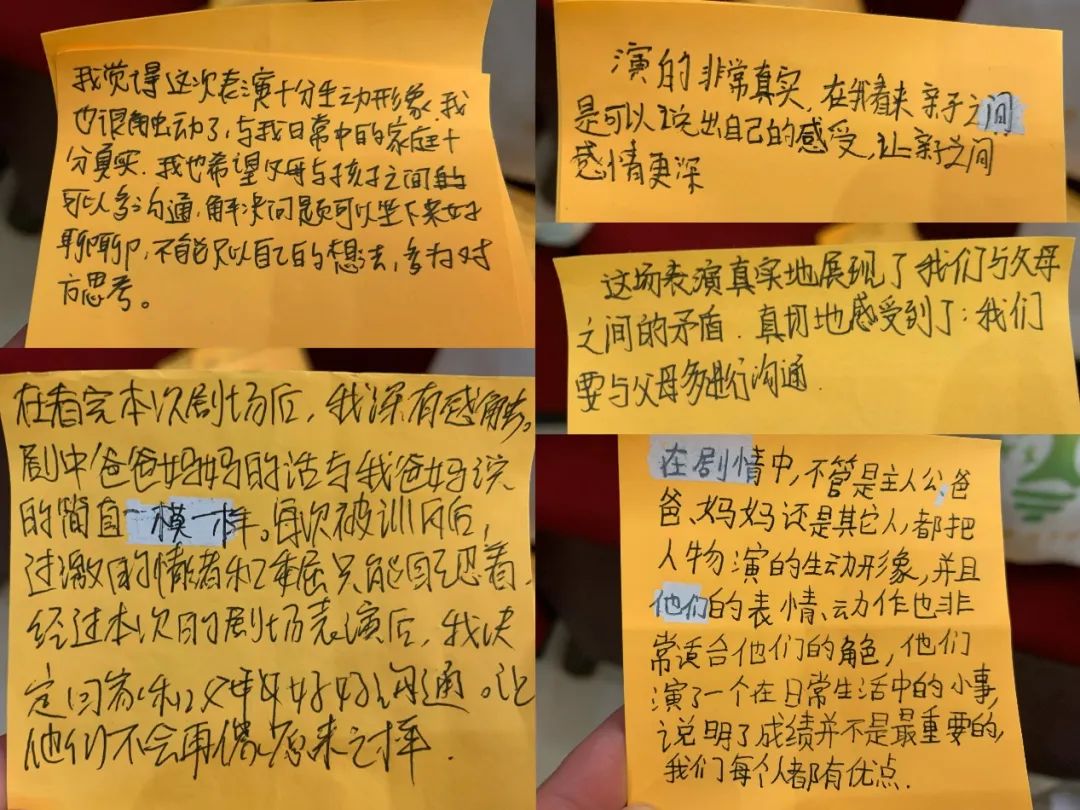 我觉得这次表演十分生动形象,我
也很触动了,与我日常中的家庭十
分真实.我也希望父母与孩子之间的
可以多沟通,解决问题可以坐下来好
聊聊,不能只以自己的想法,多为对
方思考。
演的非常真实,在我看来亲子之间
是可以说出自己的感受,让亲子之间
感情更深
这场表演真实地展现了我们与父母
之间的矛盾.真切地感受到了:我们
要与父母多进行沟通.
在看完本次剧场后,我深有感触。
剧中爸爸妈妈的话与我爸妈说
的简直一模一样。每次被训斥后,
过激的情绪和委屈只能自己忍着.
经过本次的剧场表演后,我决
定回家和父母好好沟通。让
他们不会再像原来之样.
在剧情中,不管是主人公、爸
爸、妈妈还是其它人,都把
人物演的生动形象,并且
他们的表情、动作也非
常适合他们的角色,他们
演了一个在日常生活中的小事,
说明了成绩并不是最重要的,
我们每个人都有优点.